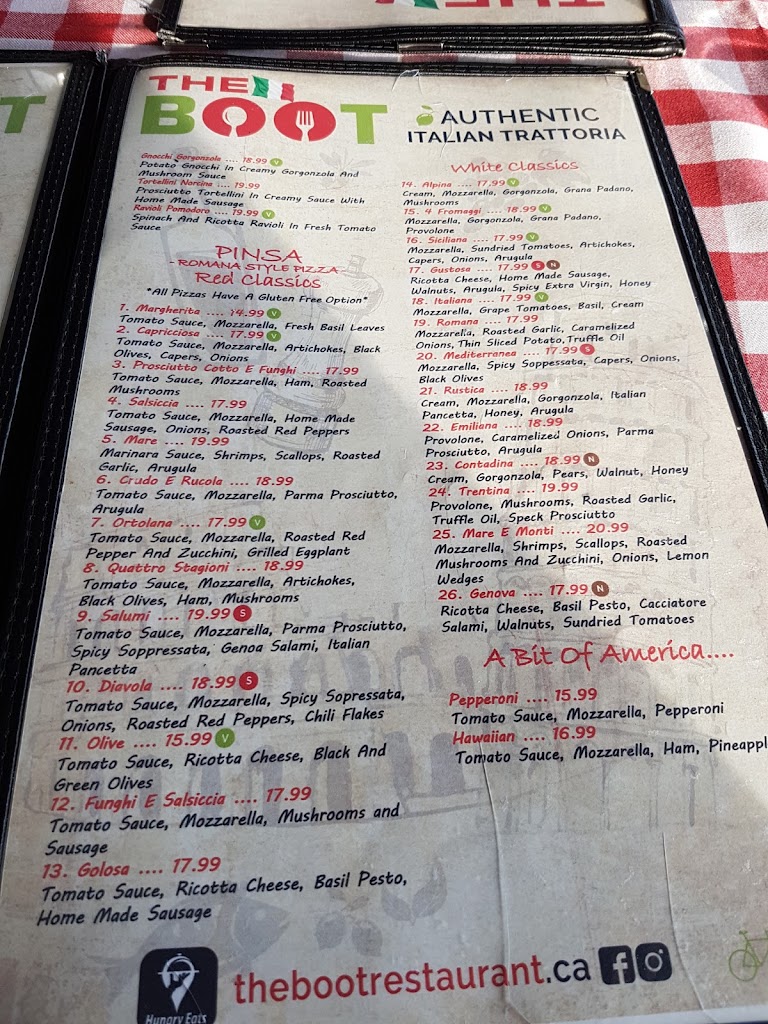 THE
BOOT
AUTHENTIC
ITALIAN TRATTORIA
Gnocchi Gorgonzola .... 18.99 V
Potato Gnocchi In Creamy Gorgonzola And
Mushroom Sauce
Tortellini Norcina .... 19.99
Prosciutto Tortellini In Creamy Sauce With
Home Made Sausage
Ravioli Pomodoro .... 19.99 V
Spinach And Ricotta Ravioli In Fresh Tomato
Sauce
PINSA
- ROMANA STYLE PIZZA -
Red Classics
*All Pizzas Have A Gluten Free Option*
1. Margherita .... 14.99 V
Tomato Sauce, Mozzarella, Fresh Basil Leaves
2. Capricciosa .... 17.99 V
Tomato Sauce, Mozzarella, Artichokes, Black
Olives, Capers, Onions
3. Prosciutto Cotto E Funghi .... 17.99
Tomato Sauce, Mozzarella, Ham, Roasted
Mushrooms
4. Salsiccia .... 17.99
Tomato Sauce, Mozzarella, Home Made
Sausage, Onions, Roasted Red Peppers
5. Mare .... 19.99
Marinara Sauce, Shrimps, Scallops, Roasted
Garlic, Arugula
6. Crudo E Rucola .... 18.99
Tomato Sauce, Mozzarella, Parma Prosciutto,
Arugula
7. Ortolana .... 17.99 V
Tomato Sauce, Mozzarella, Roasted Red
Pepper And Zucchini, Grilled Eggplant
8. Quattro Stagioni .... 18.99
Tomato Sauce, Mozzarella, Artichokes,
Black Olives, Ham, Mushrooms
9. Salumi .... 19.99 S
Tomato Sauce, Mozzarella, Parma Prosciutto,
Spicy Soppressata, Genoa Salami, Italian
Pancetta
10. Diavola .... 18.99 S
Tomato Sauce, Mozzarella, Spicy Sopressata,
Onions, Roasted Red Peppers, Chili Flakes
11. Olive .... 15.99 V
Tomato Sauce, Ricotta Cheese, Black And
Green Olives
12. Funghi E Salsiccia .... 17.99
Tomato Sauce, Mozzarella, Mushrooms and
Sausage
13. Golosa .... 17.99
Tomato Sauce, Ricotta Cheese, Basil Pesto,
Home Made Sausage
White Classics
14. Alpina .... 17.99 V
Cream, Mozzarella, Gorgonzola, Grana Padano,
Mushrooms
15. 4 Fromaggi .... 18.99 V
Mozzarella, Gorgonzola, Grana Padano,
Provolone
16. Siciliana .... 17.99 V
Mozzarella, Sundried Tomatoes, Artichokes,
Capers, Onions, Arugula
17. Gustosa .... 17.99 S N
Ricotta Cheese, Home Made Sausage,
Walnuts, Arugula, Spicy Extra Virgin, Honey
18. Italiana .... 17.99 V
Mozzarella, Grape Tomatoes, Basil, Cream
19. Romana .... 17.99
Mozzarella, Roasted Garlic, Caramelized
Onions, Thin Sliced Potato, Truffle Oil
20. Mediterranea .... 17.99 S
Mozzarella, Spicy Soppessata, Capers, Onions,
Black Olives
21. Rustica .... 18.99
Cream, Mozzarella, Gorgonzola, Italian
Pancetta, Honey, Arugula
22. Emiliana .... 18.99
Provolone, Caramelized Onions, Parma
Prosciutto, Arugula
23. Contadina .... 18.99 N
Cream, Gorgonzola, Pears, Walnut, Honey
24. Trentina .... 19.99
Provolone, Mushrooms, Roasted Garlic,
Truffle Oil, Speck Prosciutto
25. Mare E Monti .... 20.99
Mozzarella, Shrimps, Scallops, Roasted
Mushrooms And Zucchini, Onions, Lemon
Wedges
26. Genova .... 17.99 N
Ricotta Cheese, Basil Pesto, Cacciatore
Salami, Walnuts, Sundried Tomatoes
A Bit Of America....
Pepperoni .... 15.99
Tomato Sauce, Mozzarella, Pepperoni
Hawaiian .... 16.99
Tomato Sauce, Mozzarella, Ham, Pineappl
Hungry Eats
thebootrestaurant.ca